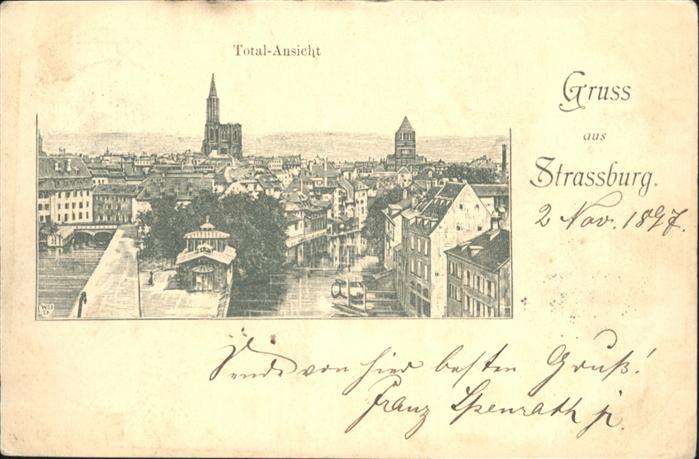 Total-Ansicht
Gruss
aus
Strassburg.
2 Nov. 1897.
Sende von hier besten Gruß!
Franz Ipenrath jr.